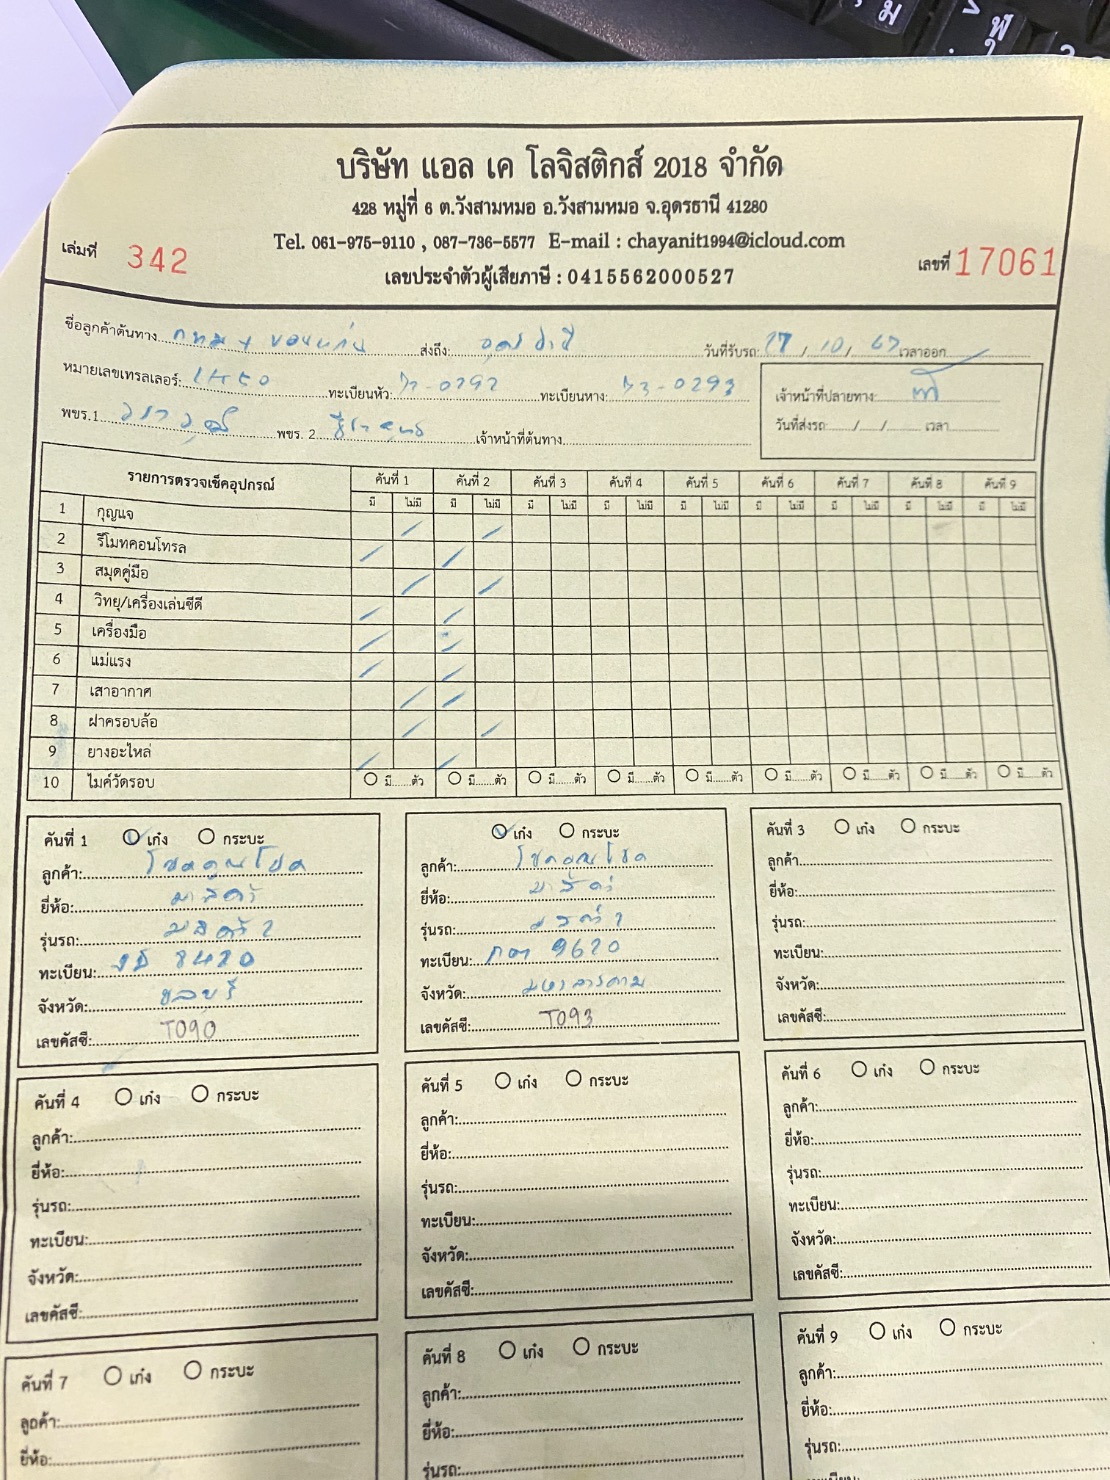 บริษัท แอล เค โลจิสติกส์ 2018 จำกัด
428 หมู่ที่ 6 ต.วังสามหมอ อ.วังสามหมอ จ.อุดรธานี 41280
Tel. 061-975-9110 , 087-736-5577 E-mail : chayanit1994@icloud.com
เล่มที่ 342 เลขที่ 17061
เลขประจำตัวผู้เสียภาษี : 0415562000527
ชื่อลูกค้าต้นทาง กทม + ขอนแก่น ส่งถึง: อุดรธานี วันที่รับรถ: / 10 / 67 เวลาออก
หมายเลขเทรลเลอร์: ทะเบียนหัว: 72-0292 ทะเบียนหาง: 73-0293
เจ้าหน้าที่ปลายทาง:
พขร.1 พขร. 2 เจ้าหน้าที่ต้นทาง
วันที่ส่งรถ / / เวลา
รายการตรวจเช็คอุปกรณ์ คันที่ 1 คันที่ 2 คันที่ 3 คันที่ 4 คันที่ 5 คันที่ 6 คันที่ 7 คันที่ 8 คันที่ 9
มี ไม่มี มี ไม่มี มี ไม่มี มี ไม่มี มี ไม่มี มี ไม่มี มี ไม่มี มี ไม่มี มี ไม่มี
1 กุญแจ
2 รีโมทคอนโทรล
3 สมุดคู่มือ
4 วิทยุ/เครื่องเล่นซีดี
5 เครื่องมือ
6 แม่แรง
7 เสาอากาศ
8 ฝาครอบล้อ
9 ยางอะไหล่
10 ไมค์วัดรอบ มี......ตัว มี......ตัว มี......ตัว มี......ตัว มี......ตัว มี......ตัว มี......ตัว มี......ตัว มี......ตัว
คันที่ 1 เก๋ง กระบะ
ลูกค้า: โชคคูณโชค
ยี่ห้อ: มาสด้า
รุ่นรถ: มาสด้า 2
ทะเบียน: 8420
จังหวัด: ชลบุรี
เลขคัสซี: T090
เก๋ง กระบะ
ลูกค้า: โชคคูณโชค
ยี่ห้อ: มาสด้า
รุ่นรถ: มาสด้า 2
ทะเบียน: กต 9620
จังหวัด: มหาสารคาม
เลขคัสซี: T093
คันที่ 3 เก๋ง กระบะ
ลูกค้า
ยี่ห้อ:
รุ่นรถ:
ทะเบียน:
จังหวัด:
เลขคัสซี:
คันที่ 4 เก๋ง กระบะ
ลูกค้า:
ยี่ห้อ:
รุ่นรถ:
ทะเบียน:
จังหวัด:
เลขคัสซี:
คันที่ 5 เก๋ง กระบะ
ลูกค้า:
ยี่ห้อ:
รุ่นรถ:
ทะเบียน:
จังหวัด:
เลขคัสซี:
คันที่ 6 เก๋ง กระบะ
ลูกค้า:
ยี่ห้อ:
รุ่นรถ:
ทะเบียน:
จังหวัด:
เลขคัสซี:
คันที่ 7 เก๋ง กระบะ
ลูกค้า:
ยี่ห้อ:
คันที่ 8 เก๋ง กระบะ
ลูกค้า:
ยี่ห้อ:
รุ่นรถ:
คันที่ 9 เก๋ง กระบะ
ลูกค้า:
ยี่ห้อ:
รุ่นรถ:
ทะเบียน: